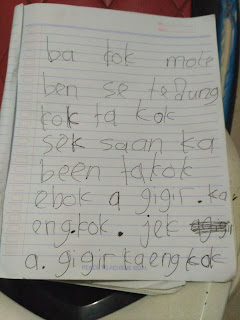 ba tok mole
ben se tedung
kok ta kok
sek saan ka
been takok
ebok a gigir. ka
engkok. jek
a. gigir kaengkok